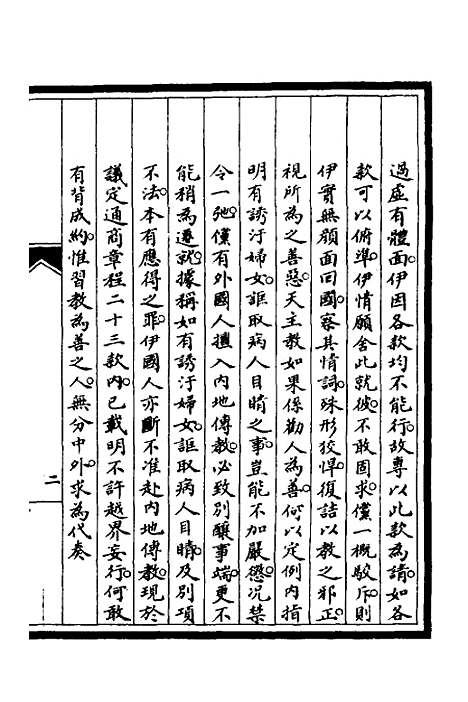 過虛有體面。伊因各款均不能行。故專以此款為請。如各
款可以俯準。伊情願舍此就彼。不敢固求。僅一概駁斥。則
伊實無顏面回國。察其情詞。殊形狡悍。復詰以教之邪正。
視所為之善惡。天主教如果係勸人為善。何以定例內指
明有誘汙婦女。誆取病人目睛之事。豈能不加嚴懲。況禁
令一弛。僅有外國人擅入內地傳教。必致別釀事端。更不
能稍為遷就。據稱如有誘汙婦女。誆取病人目睛。及別項
不法。本有應得之罪。伊國人亦斷不准赴內地傳教。現於
議定通商章程二十三款內。已載明不許越界妄行。何敢
有背成約。惟習教為善之人。無分中外。求為代奏
二